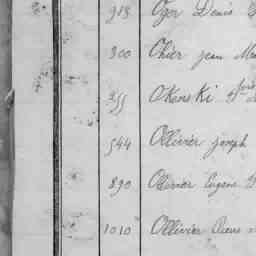 913 Oger Denis
300 Ohier jean
255 Okenski
544 Ollivier joseph
890 Ollivier Eugene
1010 Ollivier